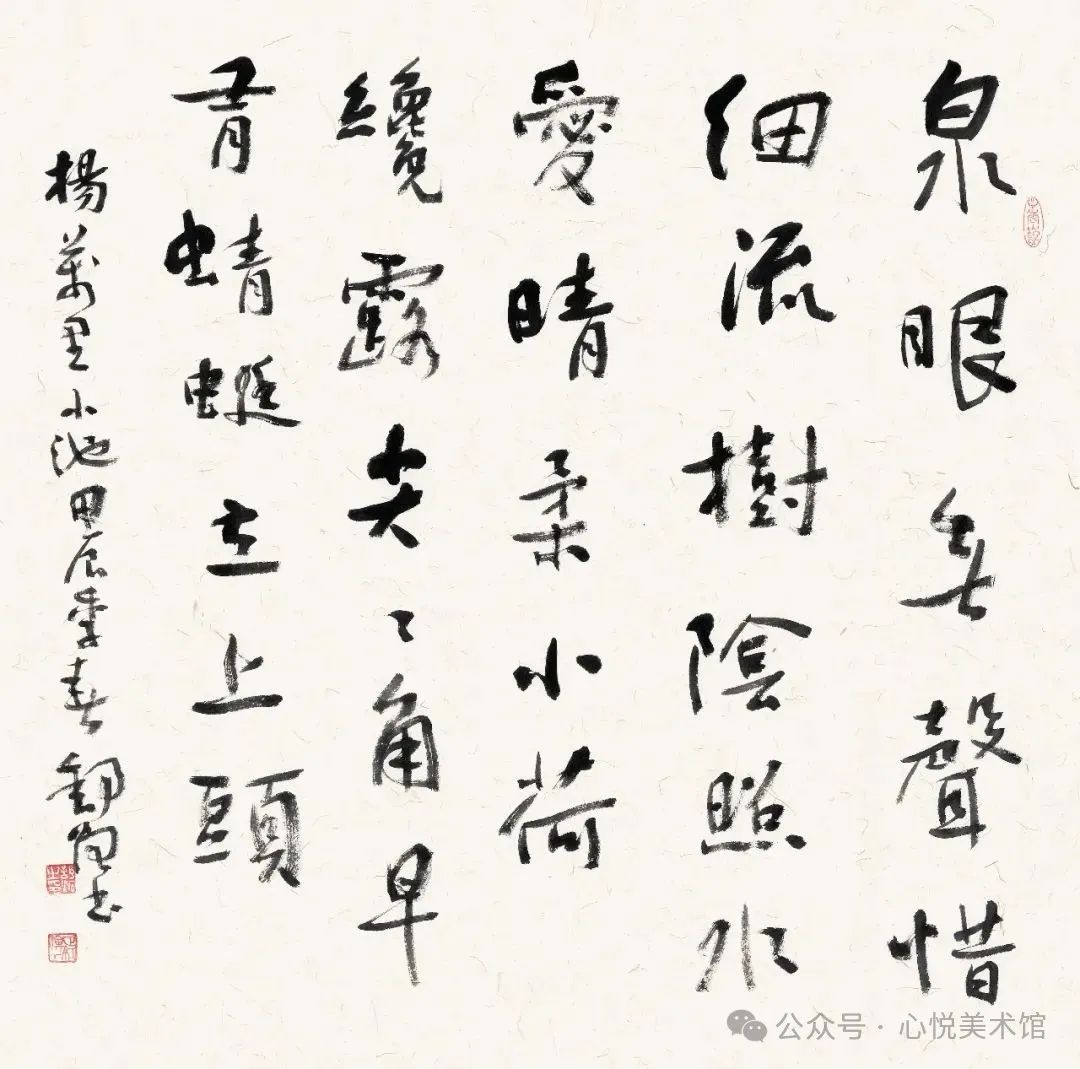 泉眼無聲惜
細流樹陰照水
愛晴柔小荷
纔露尖〻角早
有蜻蜓立上頭
楊萬里小池甲辰季春書
公众号 · 心悦美术馆